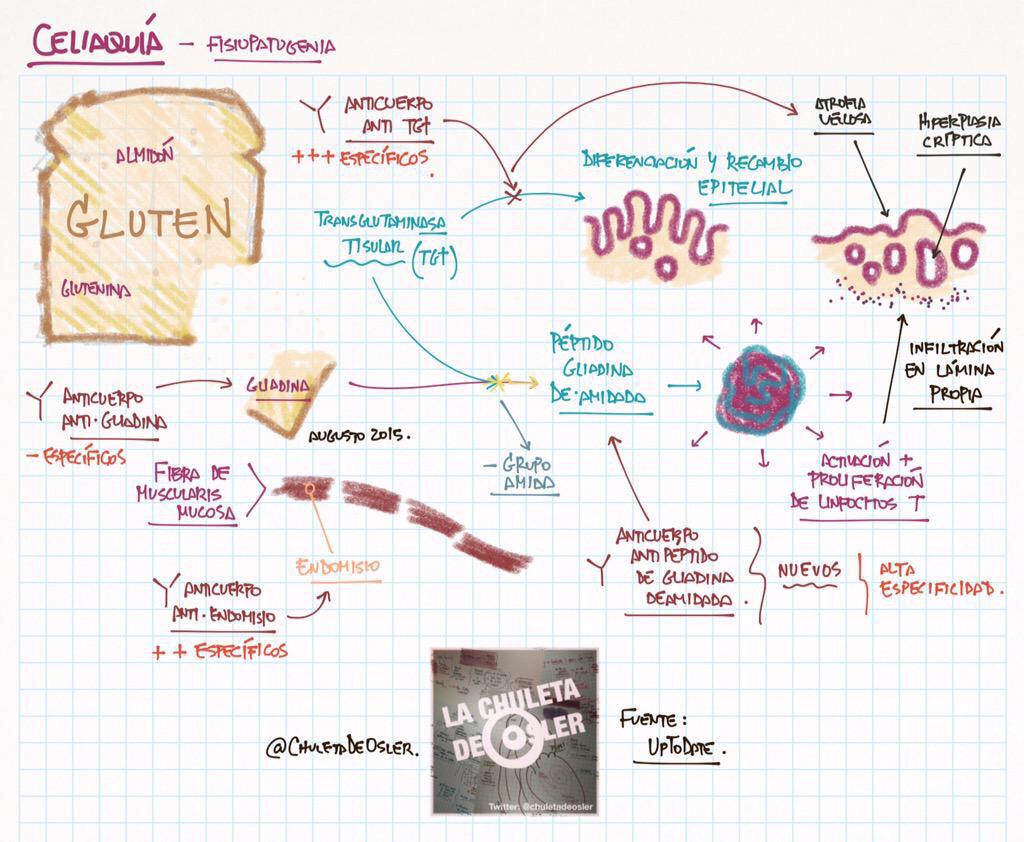 CELIAQUÍA - FISIOPATOGENIA
ALMIDÓN
GLUTEN
GLUTENINA
ANTICUERPO
ANTI TGt
+++ ESPECÍFICOS.
TRANSGLUTAMINASA
TISULAR (TGt)
DIFERENCIACIÓN Y RECAMBIO
EPITELIAL
ATROFIA
VELLOSA
HIPERPLASIA
CRÍPTICA
ANTICUERPO
ANTI-GLIADINA
- ESPECÍFICOS
GLIADINA
AUGUSTO 2015.
PÉPTIDO
GLIADINA
DE·AMIDADA
- GRUPO
AMIDA
INFILTRACIÓN
EN LÁMINA
PROPIA
ACTIVACIÓN +
PROLIFERACIÓN
DE LINFOCITOS T
FIBRA DE
MUSCULARIS
MUCOSA
ENDOMISIO
ANTICUERPO
ANTI-ENDOMISIO
++ ESPECÍFICOS
ANTICUERPO
ANTI PÉPTIDO
DE GLIADINA
DEAMIDADA.
NUEVOS
ALTA
ESPECIFICIDAD.
@CHULETADEOSLER.
LA CHULETA
DE OSLER
Twitter: @chuletadeosler
FUENTE:
UPTODATE.